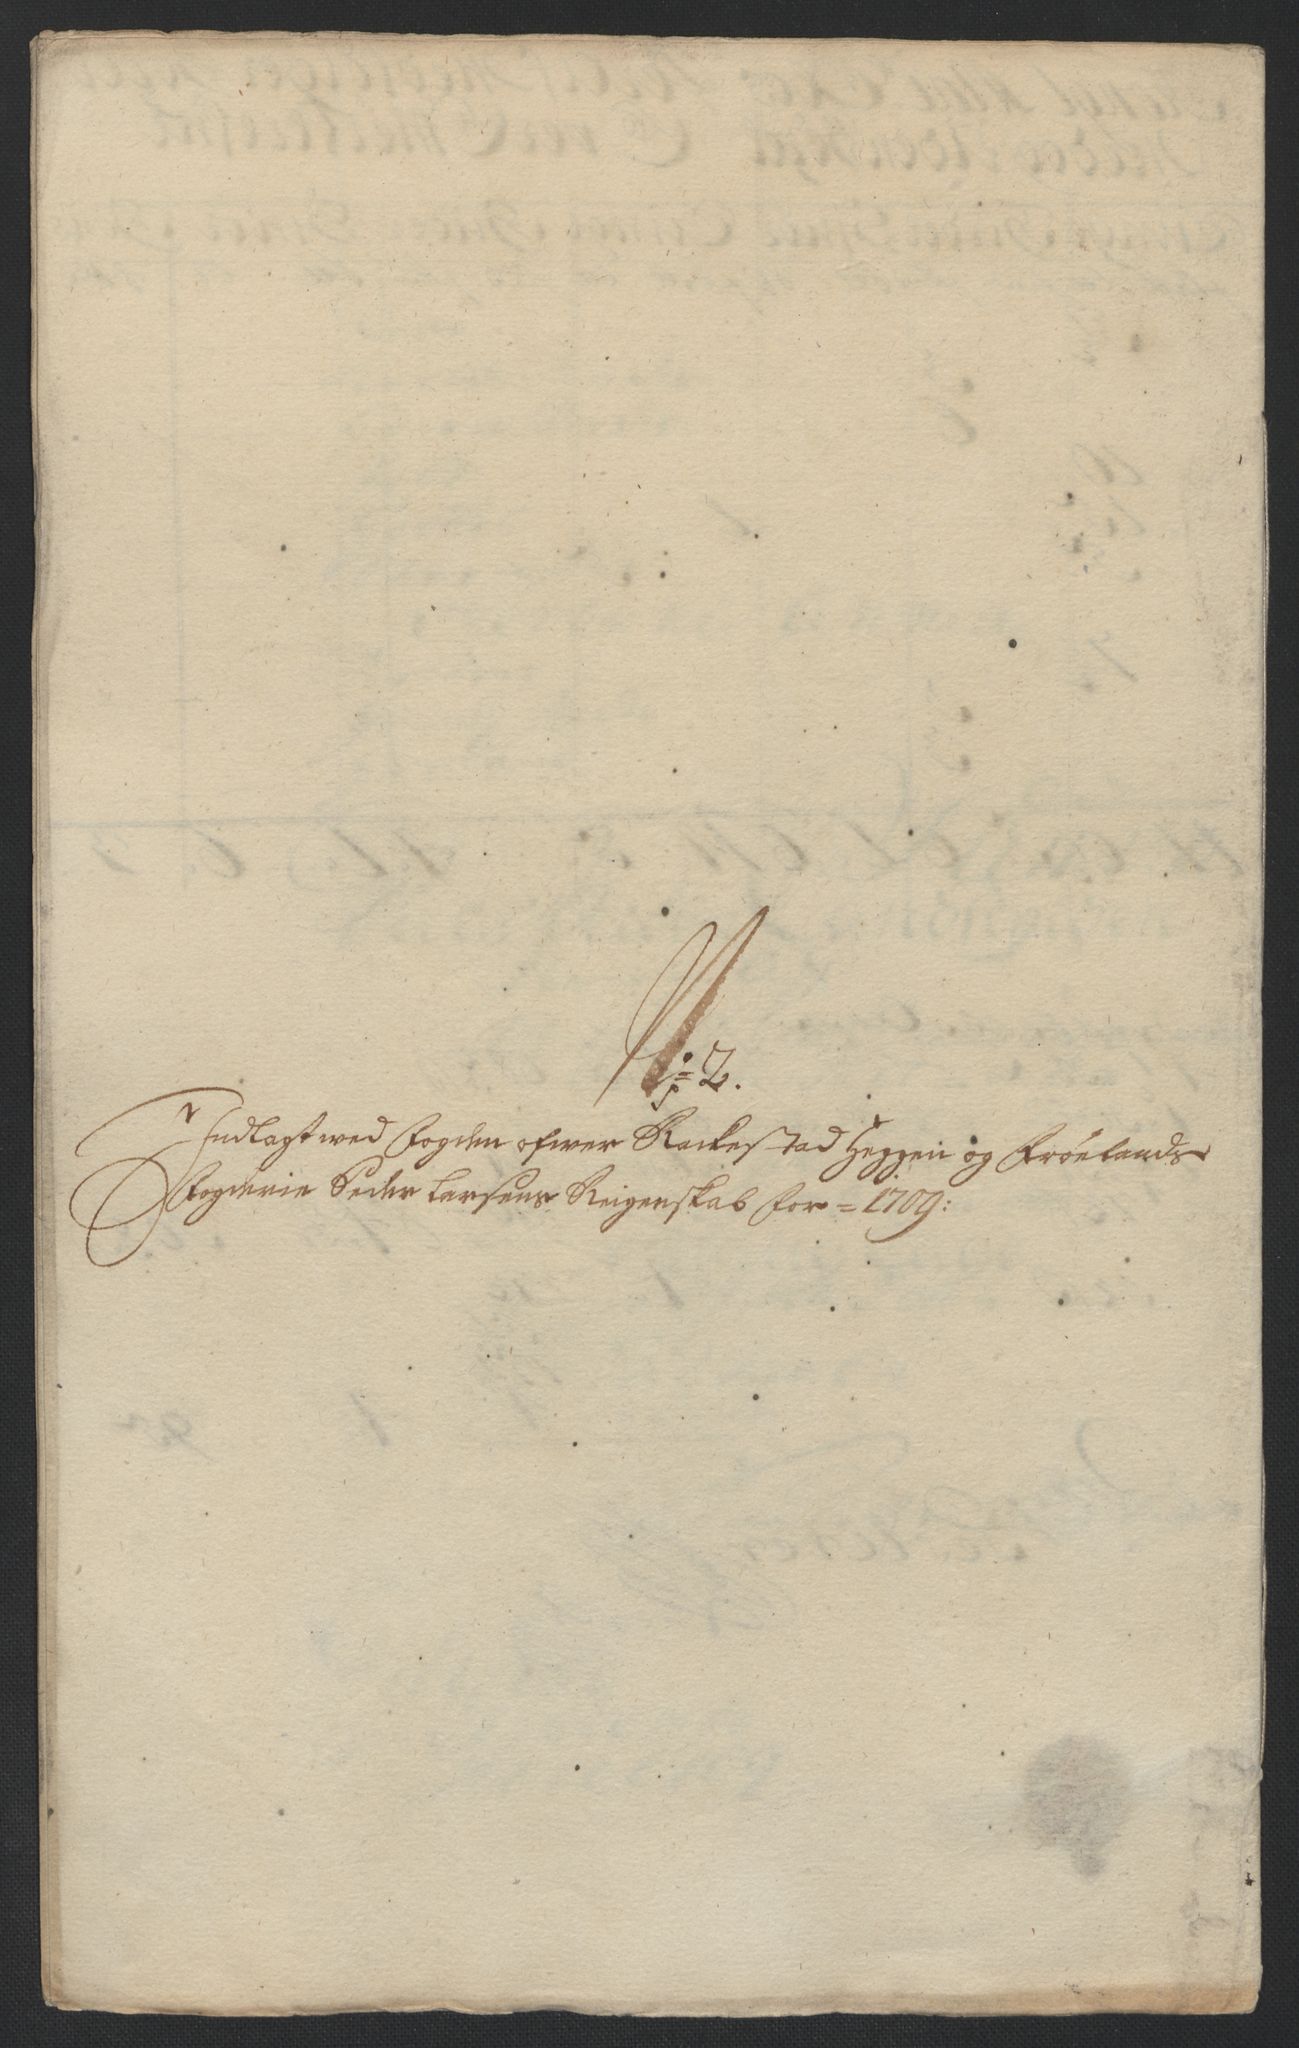 No: 2.
Indlagt wed Fogden ofwer Rackestad Heggen og Frøelands
Fogderie Peder Larsens Reigenskab for = 1709: